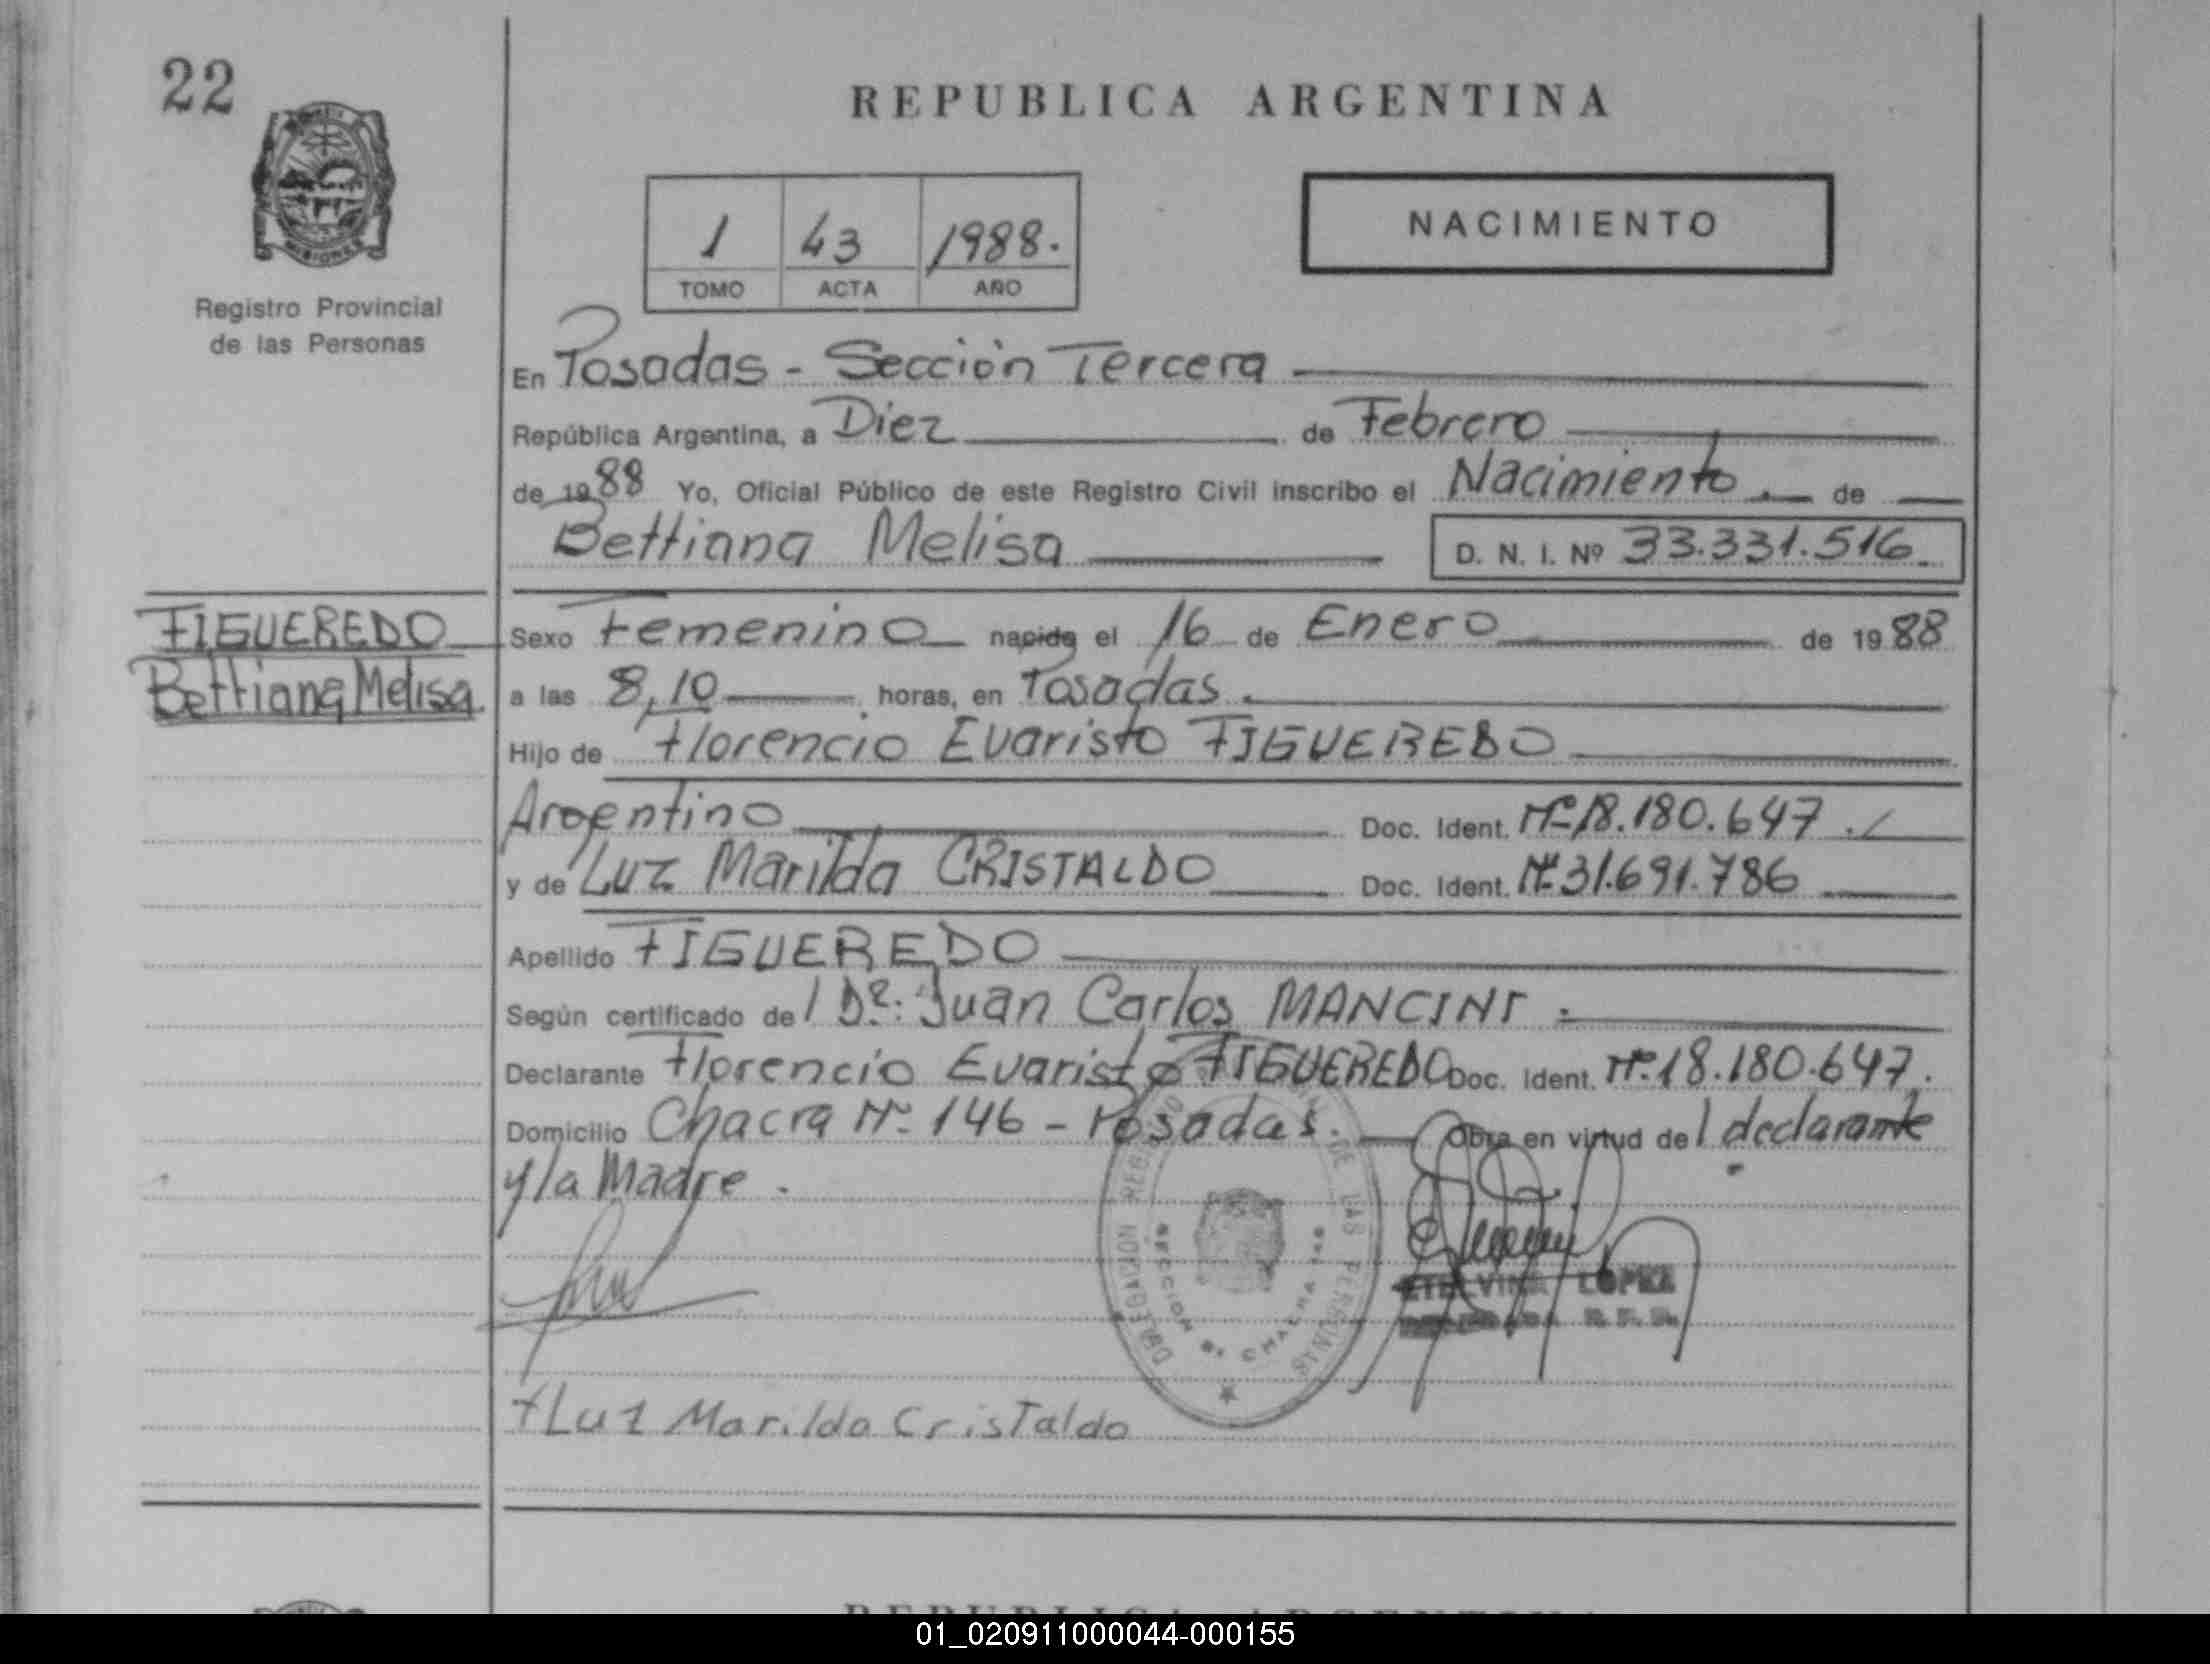 22
REPUBLICA ARGENTINA
MISIONES
Registro Provincial
de las Personas
1 43 1988.
TOMO ACTA AÑO
NACIMIENTO
En Posadas - Sección Tercera
República Argentina, a Diez de Febrero
de 1988 Yo, Oficial Público de este Registro Civil inscribo el Nacimiento. de
Bettiana Melisa D. N. I. Nº 33.331.516
FIGUEREDO
Bettiana Melisa.
Sexo Femenino nacido el 16 de Enero de 1988
a las 8,10 horas, en Posadas.
Hijo de Florencio Evaristo FIGUEREDO
Argentino Doc. Ident. Nº 18.180.647.
y de Luz Marilda CRISTALDO Doc. Ident. Nº 31.691.786
Apellido FIGUEREDO
Según certificado del Dr. Juan Carlos MANCINI.
Declarante Florencio Evaristo FIGUEREDO Doc. Ident. Nº 18.180.647.
Domicilio Chacra Nº 146 - Posadas. Obra en virtud del declarante
y la Madre.
DELEGACION REGISTRO DE LAS PERSONAS
SECCION CHACRA 146
ETELVINA LOPEZ
Luz Marilda Cristaldo
REPUBLICA ARGENTINA
01_020911000044-000155